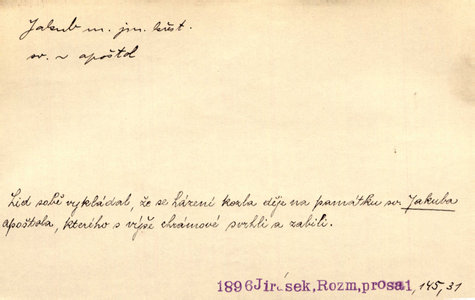 Jakub m. jm. křest.
sv. ~ apoštol
Lid sobě vykládal, že se házení kozla děje na památku sv. Jakuba
apoštola, kterého s výše chrámové svrhli a zabili.
1896 Jirásek, Rozm, prosa 1, 145, 31